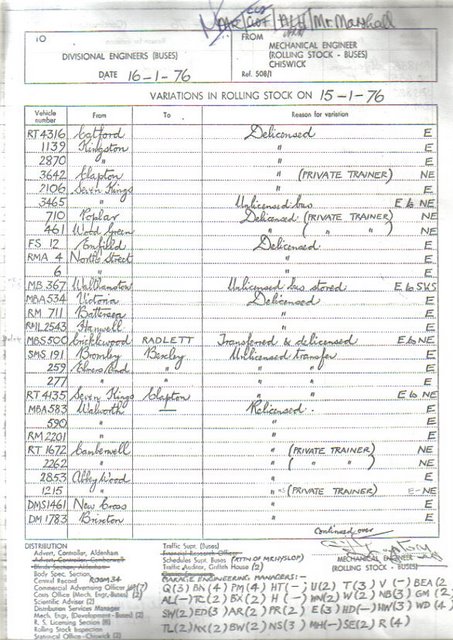 PACE/ /BLH/Mr. Marshall
10
TO
FROM
DIVISIONAL ENGINEERS (BUSES)
MECHANICAL ENGINEER
(ROLLING STOCK - BUSES)
CHISWICK
DATE 16-1-76
Ref. 508/1
VARIATIONS IN ROLLING STOCK ON 15-1-76
Vehicle number From To Reason for variation
RT 4316 Catford Delicensed E
1139 Kingston " E
2870 " " E
3642 Clapton " (PRIVATE TRAINER) NE
2106 Seven Kings " E
3465 " Unlicensed bus E to NE
710 Poplar Delicensed (PRIVATE TRAINER) NE
461 Wood Green " ( " " ) NE
FS 12 Enfield Delicensed E
RMA 4 North Street " E
6 " " E
MB 367 Walthamstow Unlicensed bus stored E to SKS
MBA 534 Victoria Delicensed E
RM 711 Battersea " E
RML 2543 Hanwell " E
MBS 500 Cricklewood RADLETT Transferred & delicensed E to NE
SMS 191 Bromley Bexley Unlicensed transfer E
259 Elmers End " " E
277 " " " E
RT 4135 Seven Kings Clapton " E to NE
MBA 583 Walworth Relicensed. E
590 " " E
RM 2201 " " E
RT 1672 Camberwell " (PRIVATE TRAINER) NE
2262 " " ( " " ) NE
2853 Abbey Wood " E
1215 " " (PRIVATE TRAINER) E-NE
DMS 1461 New Cross " E
DM 1783 Brixton " E
Continued over
DISTRIBUTION
Advert. Controller, Aldenham
Body Spec. Section
Central Record ROOM 34
Commercial Advertising Officer
Costs Office (Mech. Engr.-Buses) (2)
Scientific Adviser (2)
Distribution Services Manager
Mech. Engr. (Development-Buses)
R. S. Licensing Section
Rolling Stock Inspection
Statistical Office - Chiswick (2)
Traffic Supt. (Buses)
Financial Research Officer
Schedules Supt. Buses (ATTN OF MR HYSLOP)
Traffic Auditor, Griffith House (2)
GARAGE ENGINEERING MANAGERS:-
MECHANICAL ENGINEER
(ROLLING STOCK - BUSES)
Q(3) BN(4) PM(4) HT(-) U(2) T(3) V(-) BEA(2
SW(2) ED(3) AR(2) PR(2) E(3) HD(-) HW(3) WD(4)
TL(2) NX(2) BW(2) NS(3) MH(-) SE(2) R(4)